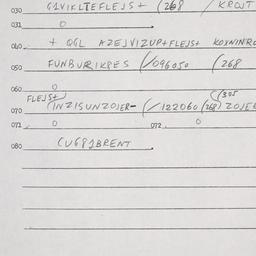 030 G1VIKLTEFLEJS+ (268 / KROJT
031 0
040 + QGL AZEJVIZUP+FLEJS+ KOXNINRO
050 FUNBURIKPES (/096050 (268
060 0
FLEJS+ (305
070 (INZISUNZOJER- (/122060 (268) ZOJER
071 0 072 0
080 CUG81BRENT